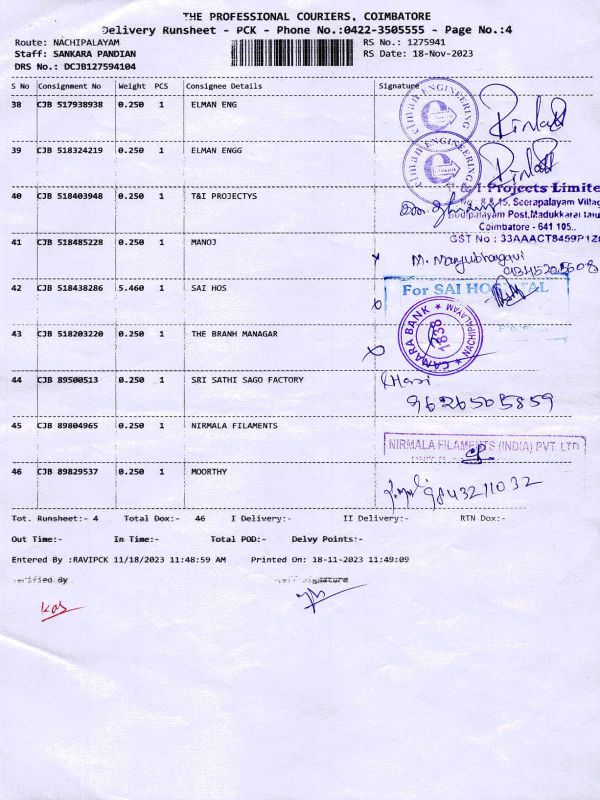 THE PROFESSIONAL COURIERS, COIMBATORE
Delivery Runsheet - PCK - Phone No.:0422-3505555 - Page No.:4
Route: NACHIPALAYAM RS No.: 1275941
Staff: SANKARA PANDIAN RS Date: 18-Nov-2023
DRS No.: DCJB127594104
S No Consignment No Weight PCS Consignee Details Signature
38 CJB 517938938 0.250 1 ELMAN ENG
elman ENGINEERING
39 CJB 518324219 0.250 1 ELMAN ENGG
elman ENGINEERING
40 CJB 518403948 0.250 1 T&I PROJECTYS
T & I Projects Limite
No. 8 & 15, Seerapalayam Villag
Seerapalayam Post, Madukkarai talu
Coimbatore - 641 105..
GST No : 33AAACT8459P1Z
41 CJB 518485228 0.250 1 MANOJ
M. Manjubhargavi
42 CJB 518438286 5.460 1 SAI HOS
For SAI HOSPITAL
43 CJB 518203220 0.250 1 THE BRANH MANAGAR
CANARA BANK ★ NACHIPALAYAM ★
1838
44 CJB 89500513 0.250 1 SRI SATHI SAGO FACTORY
Hari
9626505859
45 CJB 89804965 0.250 1 NIRMALA FILAMENTS
NIRMALA FILAMENTS (INDIA) PVT. LTD
46 CJB 89829537 0.250 1 MOORTHY
9843211032
Tot. Runsheet:- 4 Total Dox:- 46 I Delivery:- II Delivery:- RTN Dox:-
Out Time:- In Time:- Total POD:- Delvy Points:-
Entered By :RAVIPCK 11/18/2023 11:48:59 AM Printed On: 18-11-2023 11:49:09
Verified By Signature